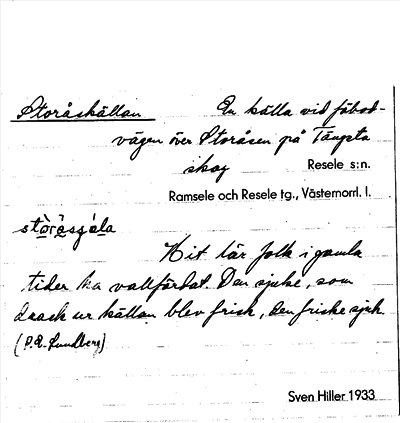 Storåskällan
En källa vid fäbod-
vägen över Storåsen på Tängsta
skog
Resele s:n.
Ramsele och Resele tg., Västernorrl. l.
Hit lär folk i gamla
tider ha vallfärdat. Den sjuke, som
drack ur källan blev frisk, den friske sjuk.
(P.E. Lundberg)
Sven Hiller 1933